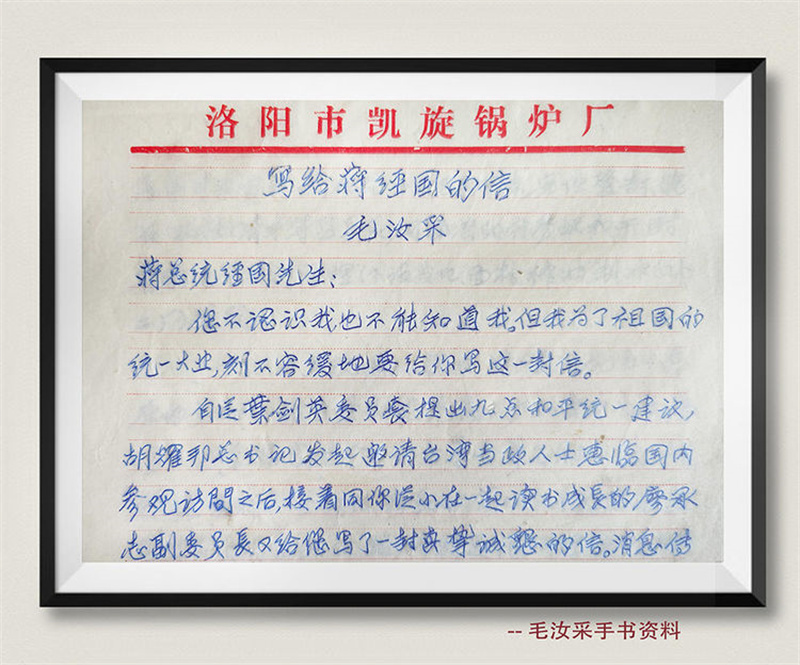 洛阳市凯旋锅炉厂
写给蒋经国的信
毛汝采
蒋总统经国先生：
您不认识我也不能知道我。但我为了祖国的
统一大业，刻不容缓地要给你写这一封信。
自从葉剑英委员長提出九点和平统一建议，
胡耀邦总书记发起邀请台湾当政人士惠临国内
参观访問之后，接着同你从小在一起读书成長的廖承
志副委员長又给您写了一封真挚诚懇的信。消息传
-- 毛汝采手书资料